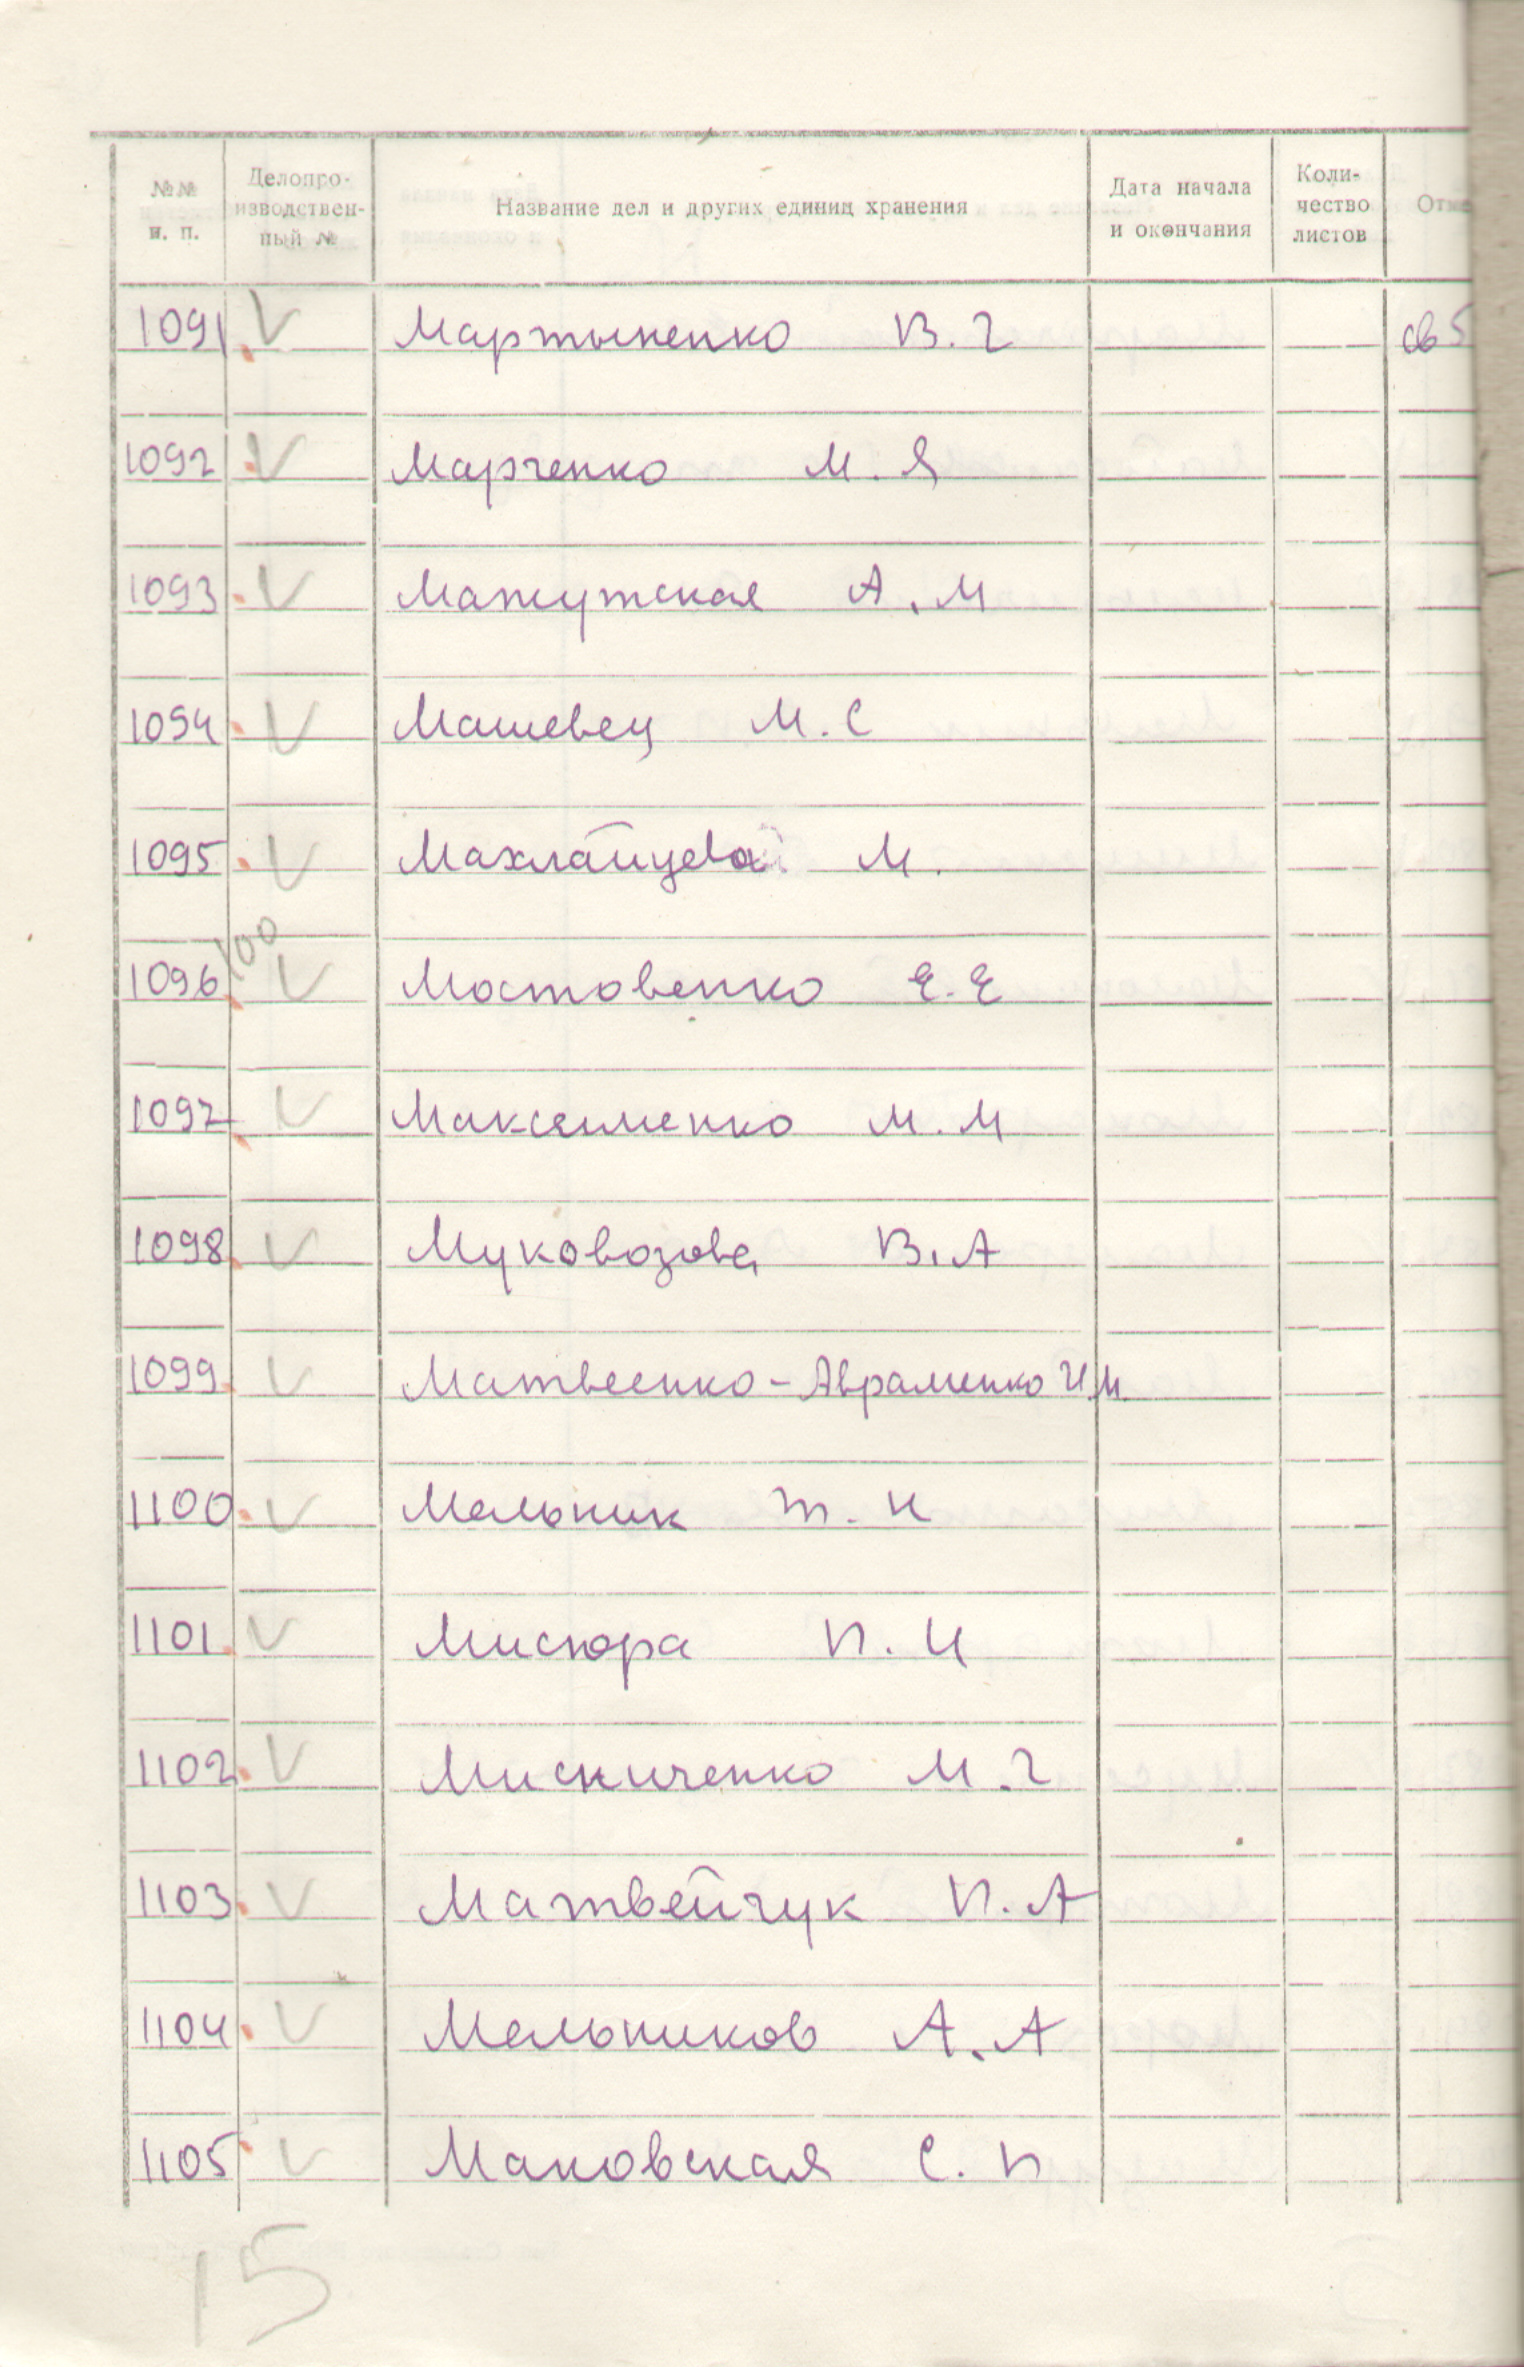 №№ п. п. Делопроизводственный № Название дел и других единиц хранения Дата начала и окончания Количество листов Отме
1091 V Мартыненко В. Г св 5
1092 V Марченко М. Я
1093 V Мажутская А. М
1094 V Машевец М. С
1095 V Махлайцева М.
100
1096 V Мостовенко Е. Е
1097 V Максименко М. М
1098 V Муковозова В. А
1099 V Матвеенко - Авраменко И. М.
1100 V Мельник Т. И
1101 V Мисюра П. И
1102 V Мискиченко М. Г
1103 V Матвейчук П. А
1104 V Мельников А. А
1105 V Маковская С. П
15